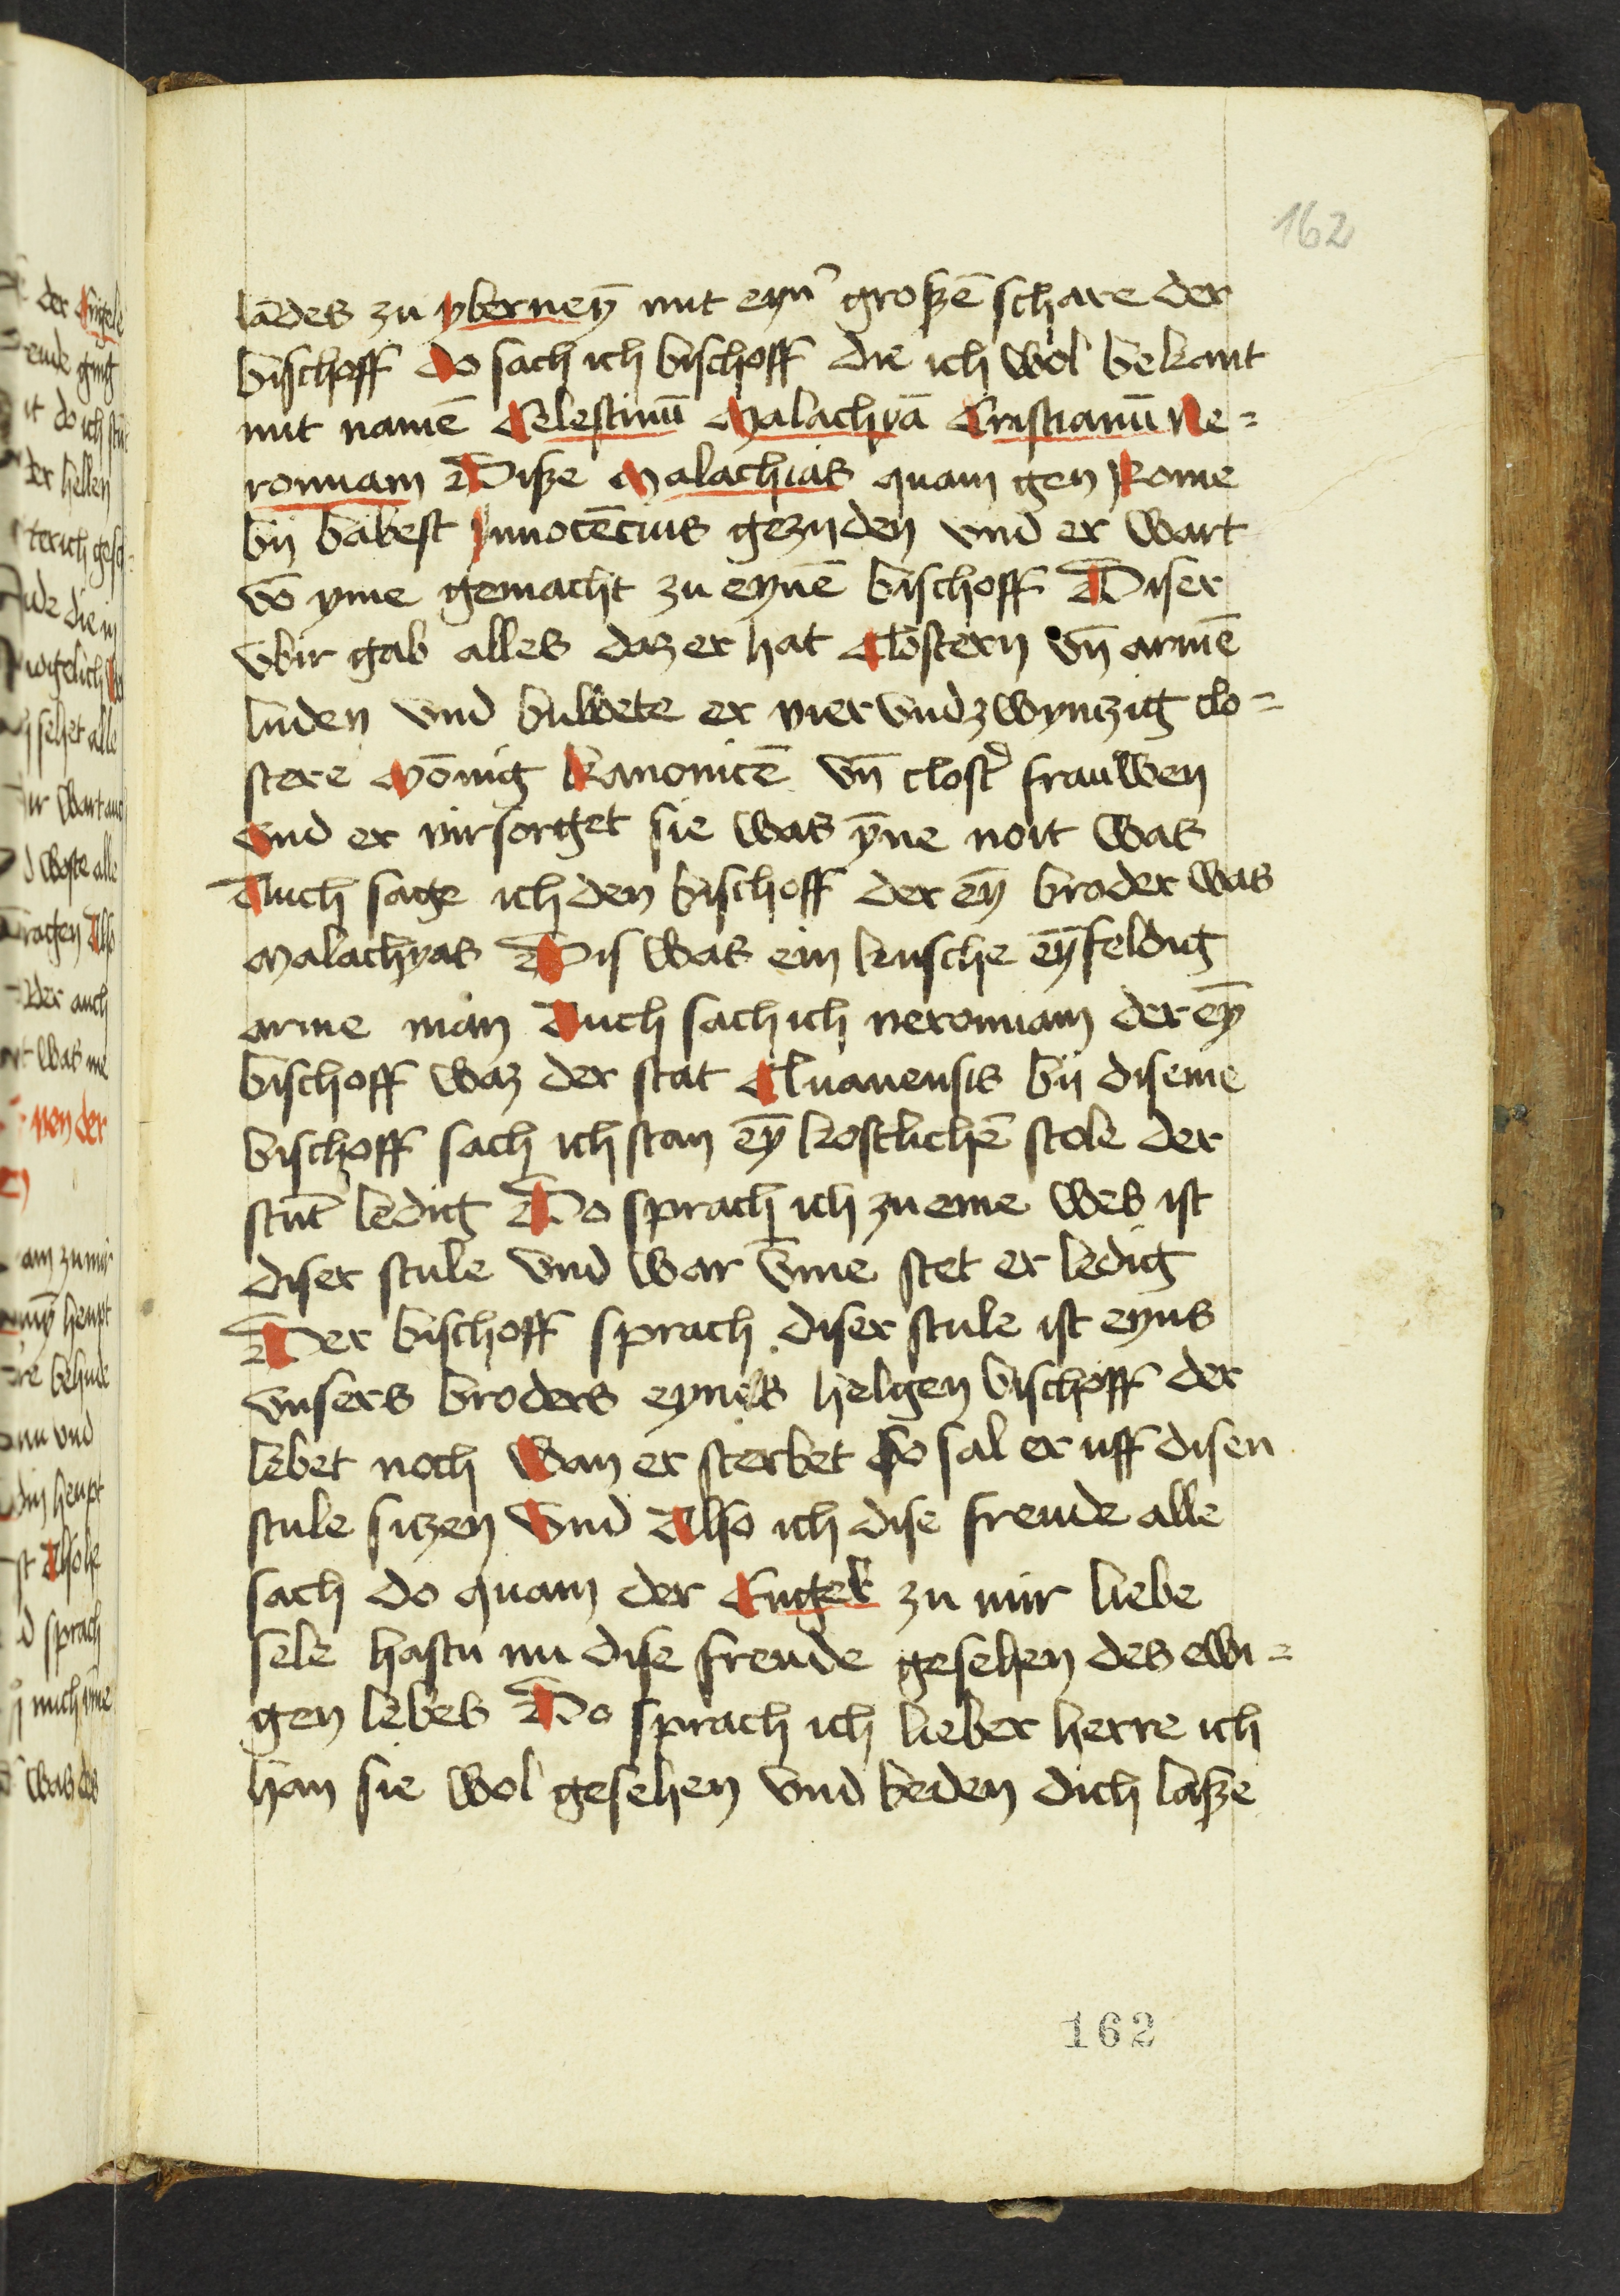 162
lādes zu yberneȳ mit eyn' großē schare der
bischoff do sach ich bischoff die ich wol bekant
mit namē Celestinū Malachyā Cristianū Ne=
romiam Diße Malachias quam gen Rome
by babest Innocēcius gezyden vnd er wart
vō yme gemacht zu eynē bischoff Diser
vbir gab alles daz er hat Clostern vn̄ armē
luden vnd buwete er vier vndzwyntzig clo=
stere Mōnig Kanonicē vn̄ clost' frauwen
Vnd er virsorget sie was ȳne noit was
Auch sage ich den bischoff der eȳ broder was
Malachyas Dis was ein kusche eȳfeldig
arme man Auch sach ich neromiam der eȳ
bischoff waz der stat Cluanensis by diseme
bischoff sach ich stan eȳ kostlichē stole der
stūt ledig Do sprach ich zu eme wes ist
diser stule vnd war v̄me stet er ledig
Der bischoff sprach diser stule ist eyns
vnsers broders eynis helgen bischoff der
lebet noch Wan er sterbet so sal er uff disen
stule sitzen Vnd Also ich dise freude alle
sach do quam der Engel zu mir liebe
sele hastu nu dise freude gesehen des ewi=
gen lebes Do sprach ich lieber herre ich
han sie wol gesehen vnd beden dich laße
162